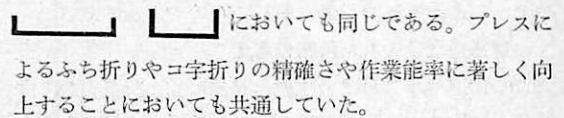 においても同じである。プレスに
よるふち折りやコ字折りの精確さや作業能率に著しく向
上することにおいても共通していた。